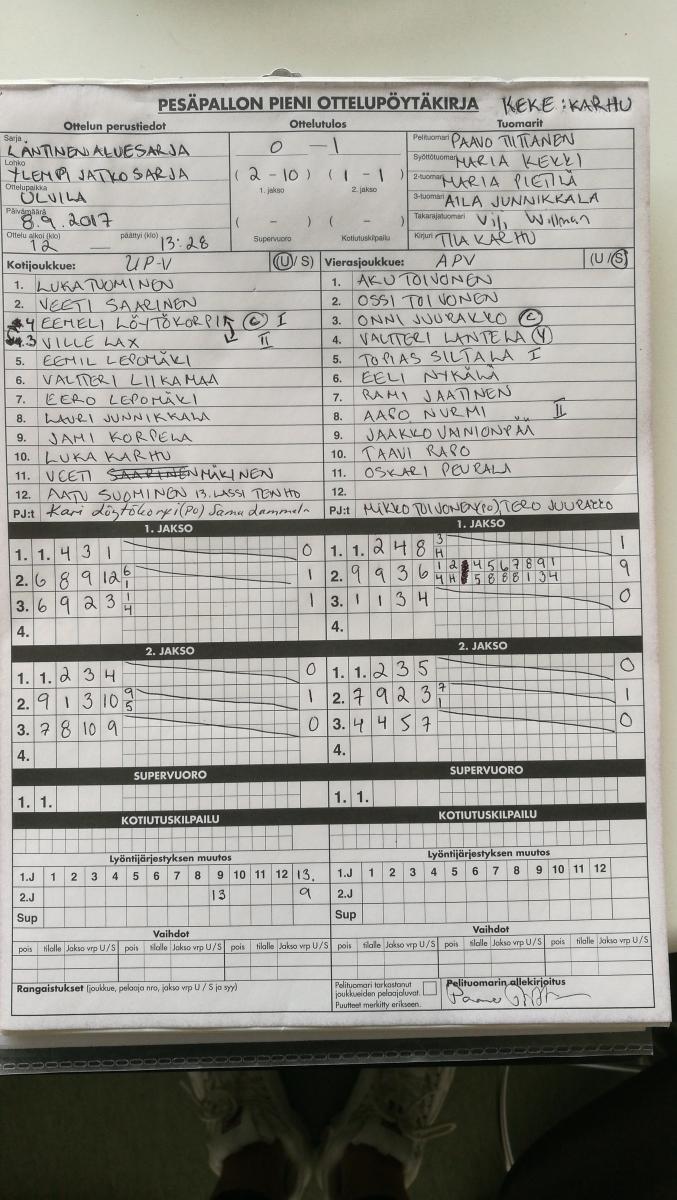 PESÄPALLON PIENI OTTELUPÖYTÄKIRJA KEKE : KARHU
Ottelun perustiedot Ottelutulos Tuomarit
Sarja LÄNTINEN ALUESARJA
Lohko YLEMPI JATKOSARJA
Ottelupaikka ULVILA
Päivämäärä 8.9.2017
Ottelu alkoi (klo) 12 päättyi (klo) 13:28
0 - 1
( 2 - 10 ) ( 1 - 1 )
1. jakso 2. jakso
( - ) ( - )
Supervuoro Kotiutuskilpailu
Pelituomari PAAVO TIITTANEN
Syöttötuomari MARIA KEKKI
2-tuomari MARIA PIETILÄ
3-tuomari AILA JUNNIKKALA
Takarajatuomari Willman
Kirjuri TIIA KARHU
Kotijoukkue: UP-V (U/S)
1. LUKA TUOMINEN
2. VEETI SAARINEN
4 EEMELI LÖYTÖKORPI C I
3 VILLE LAX II
5. EEMIL LEPOMÄKI
6. VALTTERI LIIKAMAA
7. EERO LEPOMÄKI
8. LAURI JUNNIKKALA
9. JAMI KORPELA
10. LUKA KARHU
11. VEETI SAARINEN MÄKINEN
12. AATU SUOMINEN 13. LASSI TENHO
PJ:t Kari Löytökorpi (PO) Samu Lammela
Vierasjoukkue: APV (U/S)
1. AKU TOIVONEN
2. OSSI TOIVONEN
3. ONNI JUURAKKO C
4. VALTTERI LANTELA (V)
5. TOPIAS SILTALA I
6. EELI NYKÄLÄ
7. RAMI JAATINEN
8. AAPO NURMI II
9. JAAKKO VAINIONPÄÄ
10. TAAVI RAPO
11. OSKARI PEURALA
12.
PJ:t MIKKO TOIVONEN (PO), TERO JUURAKKO
1. JAKSO
1. 1. 4 3 1 0
2. 6 8 9 12 6 1 1
3. 6 9 2 3 1 4 1
4.
1. JAKSO
1. 1. 2 4 8 3 H 1
2. 9 9 3 6 1 2 4 5 6 7 8 9 1 9
4 H 5 8 8 8 1 3 4
3. 1 1 3 4 0
4.
2. JAKSO
1. 1. 2 3 4 0
2. 9 1 3 10 9 5 1
3. 7 8 10 9 0
4.
2. JAKSO
1. 1. 2 3 5 0
2. 7 9 2 3 7 1 1
3. 4 4 5 7 0
4.
SUPERVUORO SUPERVUORO
1. 1. 1. 1.
KOTIUTUSKILPAILU KOTIUTUSKILPAILU
Lyöntijärjestyksen muutos Lyöntijärjestyksen muutos
1.J 1 2 3 4 5 6 7 8 9 10 11 12 13. 1.J 1 2 3 4 5 6 7 8 9 10 11 12
2.J 13 9 2.J
Sup Sup
Vaihdot Vaihdot
pois tilalle Jakso vrp U/S pois tilalle Jakso vrp U/S pois tilalle Jakso vrp U/S pois tilalle Jakso vrp U/S pois tilalle Jakso vrp U/S pois tilalle Jakso vrp U/S
Rangaistukset (joukkue, pelaaja nro, jakso vrp U / S ja syy)
Pelituomari tarkastanut
joukkueiden pelaajaluvat.
Puutteet merkitty erikseen.
Pelituomarin allekirjoitus